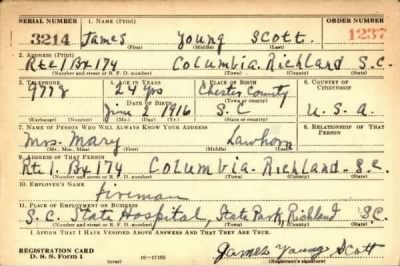 SERIAL NUMBER 1. NAME (Print) ORDER NUMBER
3214 James Young Scott. 1237
(First) (Middle) (Last)
2. ADDRESS (Print)
Rte 1 Bx 174 Columbia. Richland S.C.
(Number and street or R. F. D. number) (Town) (County) (State)
3. TELEPHONE 4. AGE IN YEARS 5. PLACE OF BIRTH 6. COUNTRY OF CITIZENSHIP
9778 24 yrs Chester County
DATE OF BIRTH (Town or county)
June 1916 S.C U.S.A.
(Exchange) (Number) (Mo.) (Day) (Yr.) (State or country)
7. NAME OF PERSON WHO WILL ALWAYS KNOW YOUR ADDRESS 8. RELATIONSHIP OF THAT PERSON
Mrs. Mary Lawhorn
(Mr., Mrs., Miss) (First) (Middle) (Last)
9. ADDRESS OF THAT PERSON
Rt. 1. Bx 174 Columbia. Richland. S.C.
(Number and street or R. F. D. number) (Town) (County) (State)
10. EMPLOYER'S NAME
Fireman
11. PLACE OF EMPLOYMENT OR BUSINESS
S.C. State Hospital, State Park, Richland S.C.
(Number and street or R. F. D. number) (Town) (County) (State)
I AFFIRM THAT I HAVE VERIFIED ABOVE ANSWERS AND THAT THEY ARE TRUE.
REGISTRATION CARD
D. S. S. Form 1 (over) 16—17105 James Young Scott